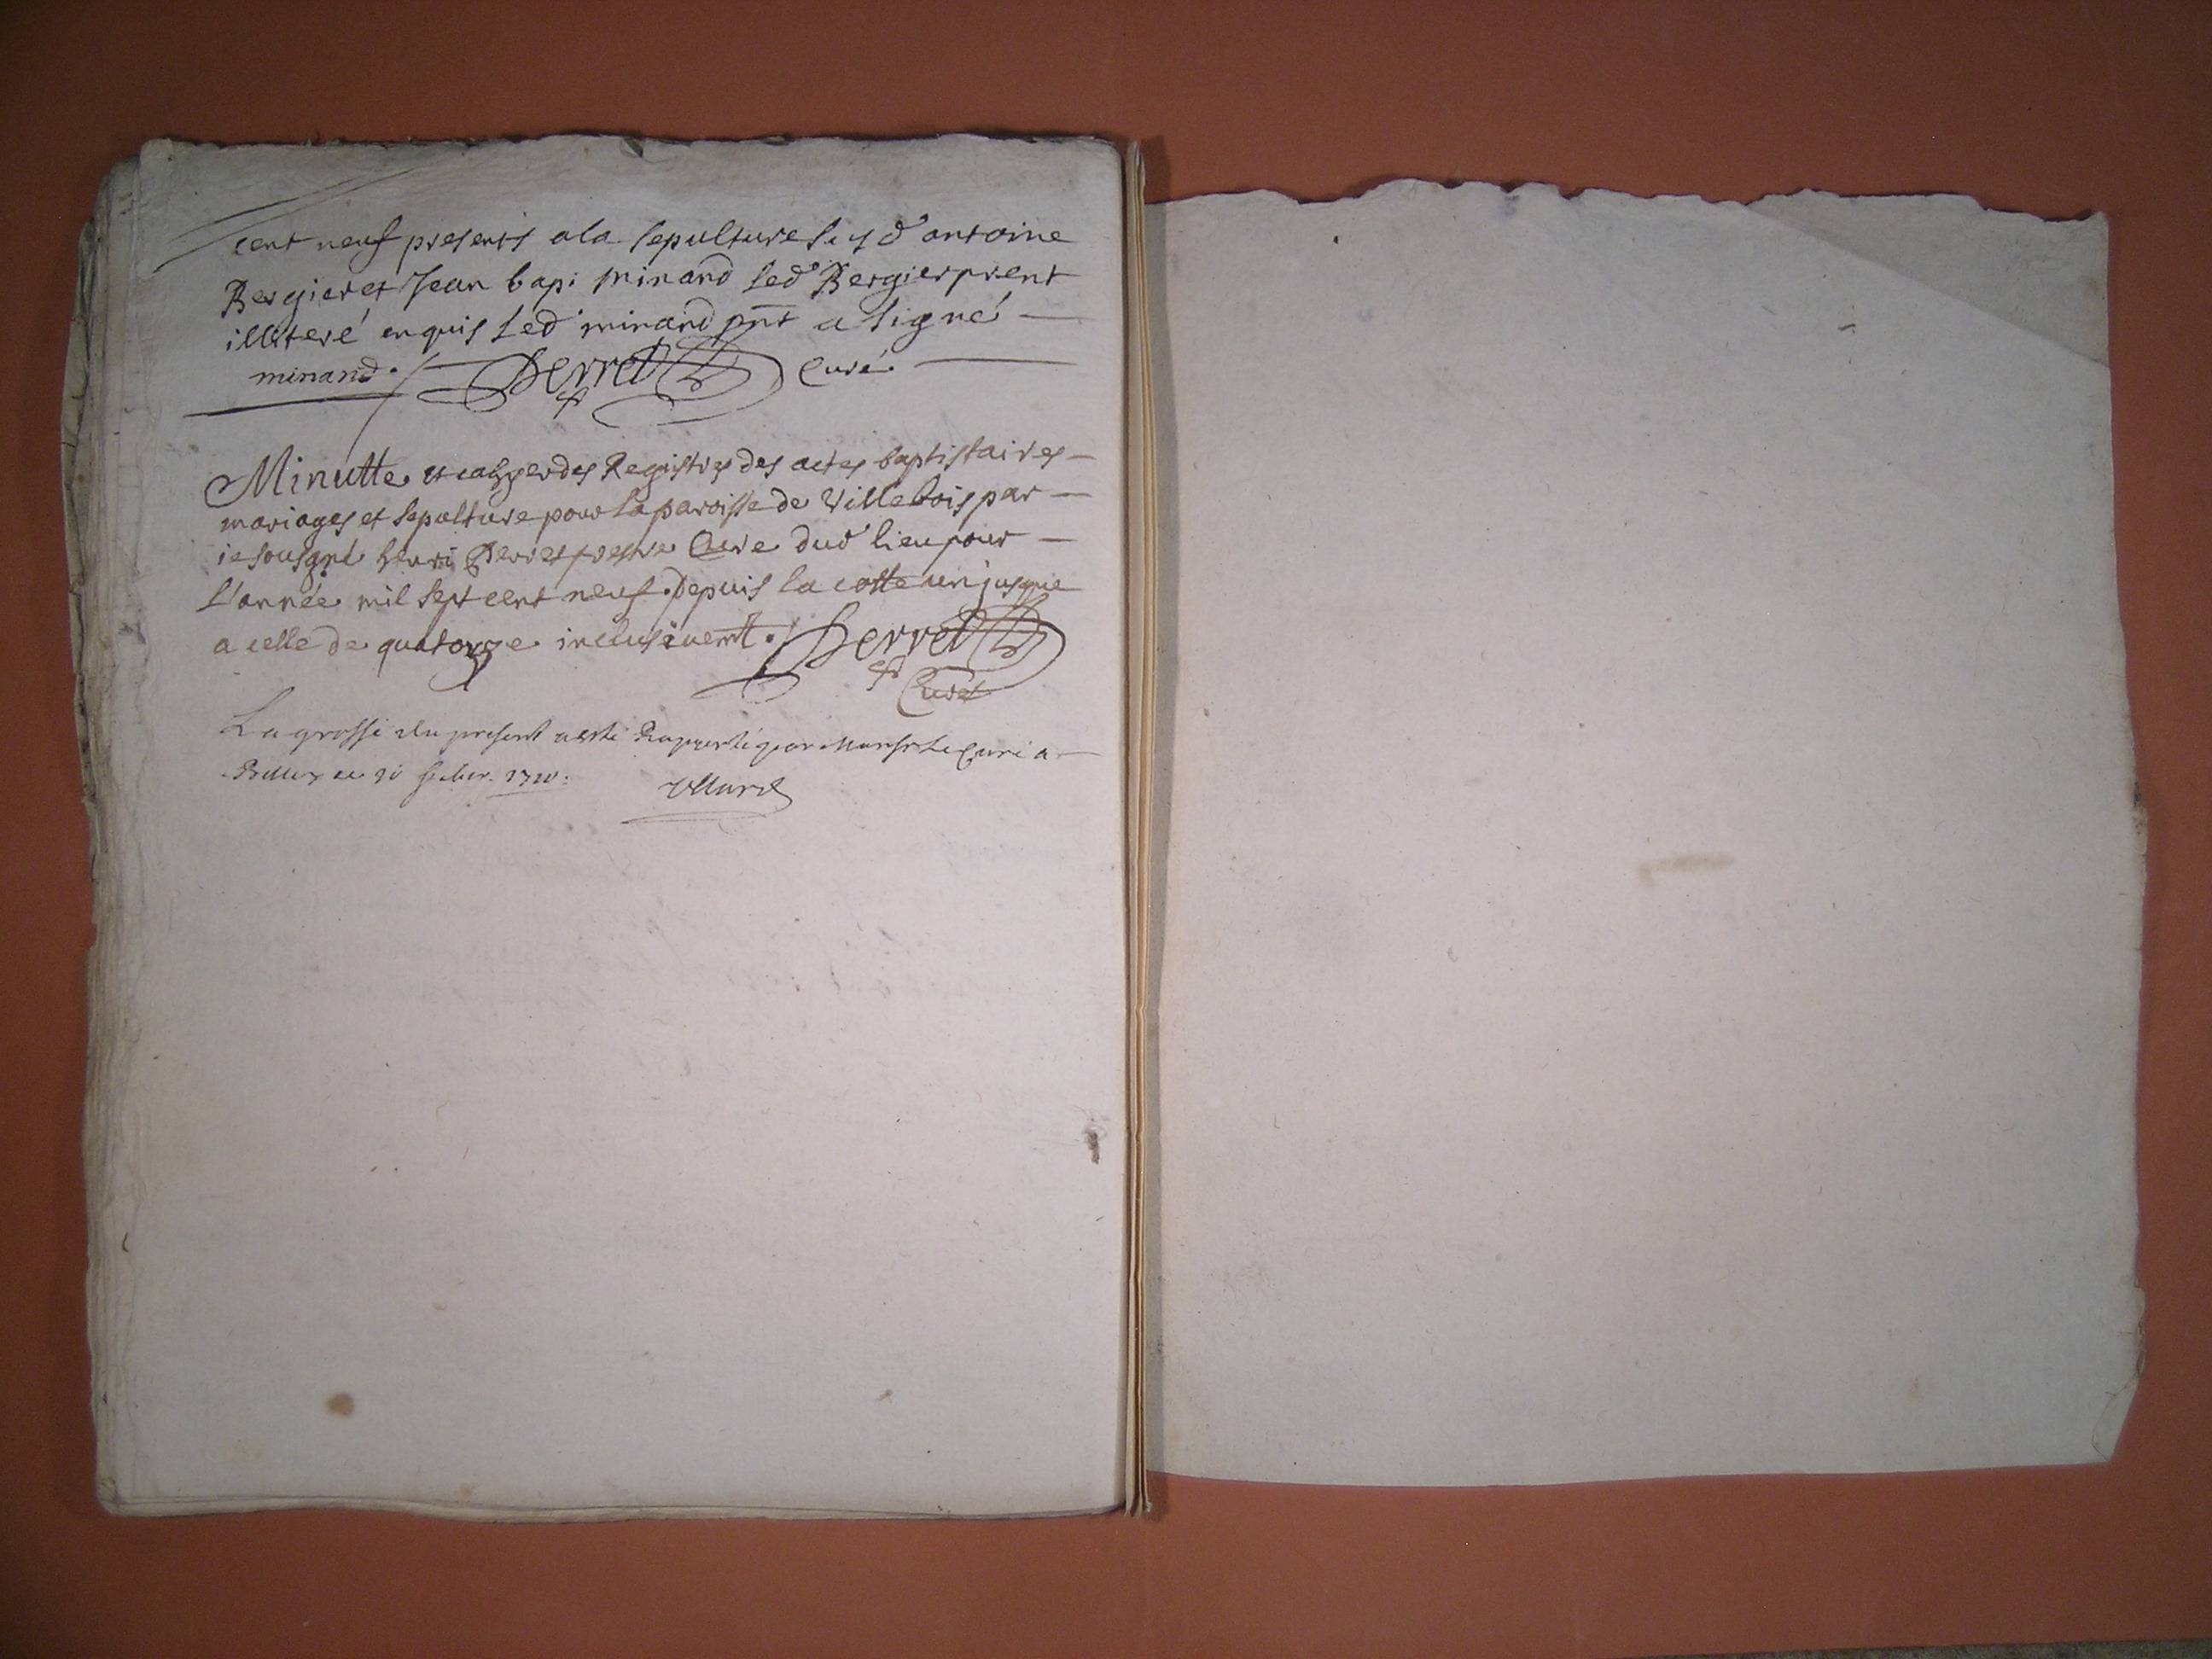 cent neuf presents a la sepulture lesd antoine
Bergier et Jean bap: minand led Bergier prent
illiteré enquis led minand pnt a signé
minand. Perret Curé.
Minutte et cahyer des Registres des actes baptistaires
mariages et sepulture pour la paroisse de Villebois par
ie sousgné henri Perret prestre Cure dud lieu pour
L'année mil sept cent neuf. Depuis la cotte un jusque
a celle de quatorze inclusivemt. Perret
Curé
La grosse du present a esté Rapporté par Monsr Le Curé a
Belley ce 1710.